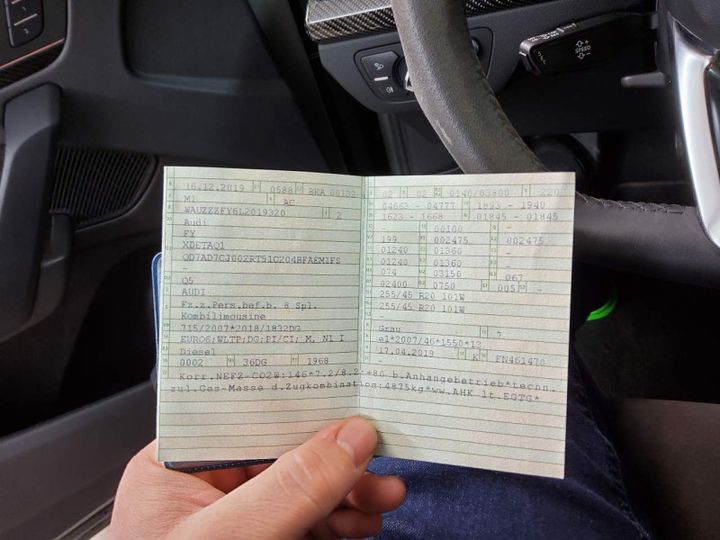 SPEED
16.12.2019 0588 BKA 00132
M1 AC
WAUZZZFY6L2019320 2
Audi
FY
XDETAQ1
QD7AD7CJ002RT51C204BFAEM1FS
-
Q5
AUDI
Fz.z.Pers.bef.b. 8 Spl.
Kombilimousine
715/2007*2018/1832DG
EURO6;WLTP;DG;PI/CI; M, N1 I
Diesel
0002 36DG 1968
02 02 0140/03800 220
04663 - 04777 1893 - 1940
1623 - 1668 01845 - 01845
- 00100 -
199 002475 002475
01240 01360 -
01240 01360 -
074 03150 067
02400 0750 005 -
255/45 R20 101W
255/45 R20 101W
-
Grau 7
e1*2007/46*1550*12
17.04.2019 K FN461470
Korr.NEFZ-CO2W:146*7.2/8.2:+86 b.Anhangebetrieb*techn.
zul.Ges-Masse d.Zugkombination:4875kg*ww.AHK lt.EGTG*